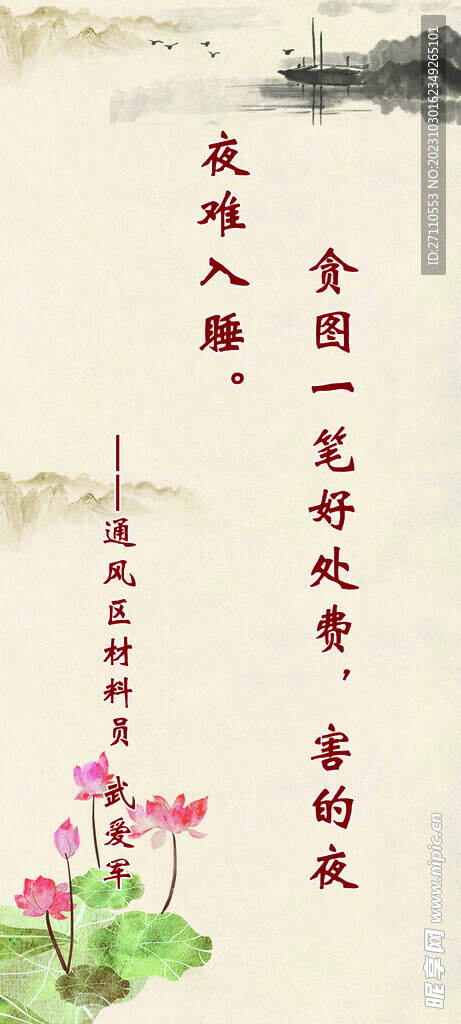 贪图一笔好处费，害的夜
夜难入睡。
——通风区材料员 武爱军
ID:27110553 NO:20231030162349265101
昵享网 www.nipic.cn